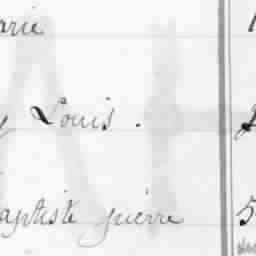 arie
y Louis .
aptiste pierre
5